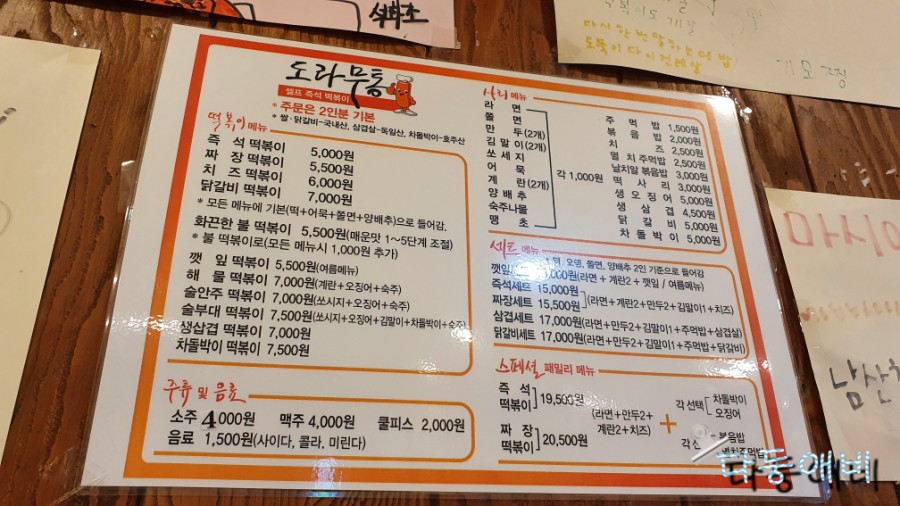 석화초
떡볶이도
다시 한 번 말하는데 밥
도둑이 다 이건쏘쌀
도라무통
셀프 즉석 떡볶이
* 주문은 2인분 기본
* 쌀·닭갈비-국내산, 삼겹살-독일산, 차돌박이-호주산
떡볶이 메뉴
즉 석 떡볶이 5,000원
짜 장 떡볶이 5,500원
치 즈 떡볶이 6,000원
닭갈비 떡볶이 7,000원
* 모든 메뉴에 기본(떡+어묵+쫄면+양배추)으로 들어감.
화끈한 불 떡볶이 5,500원(매운맛 1~5단계 조절)
* 불 떡볶이로(모든 메뉴시 1,000원 추가)
깻 잎 떡볶이 5,500원(여름메뉴)
해 물 떡볶이 7,000원(계란+오징어+숙주)
술안주 떡볶이 7,000원(쏘시지+오징어+숙주)
술부대 떡볶이 7,500원(쏘시지+오징어+김말이+차돌박이+숙주)
생삼겹 떡볶이 7,000원
차돌박이 떡볶이 7,500원
주류 및 음료
소주 4,000원 맥주 4,000원 쿨피스 2,000원
음료 1,500원(사이다, 콜라, 미린다)
사리 메뉴
라 면
쫄 면
만 두(2개)
김 말 이(2개)
쏘 세 지
어 묵
계 란(2개)
양 배 추
숙주나물
땡 초
각 1,000원
주 먹 밥 1,500원
볶 음 밥 2,000원
치 즈 2,500원
멸 치 주먹밥 2,500원
날치알 볶음밥 3,000원
떡 사 리 3,000원
생 오 징 어 5,000원
생 삼 겹 4,500원
닭 갈 비 5,000원
차 돌 박 이 5,000원
세트 메뉴
떡, 오뎅, 쫄면, 양배추 2인 기준으로 들어감
깻잎 000원(라면 + 계란2 + 깻잎 / 여름메뉴)
즉석세트 15,000원
짜장세트 15,500원 (라면+계란2+만두2+김말이1+치즈)
삼겹세트 17,000원(라면+만두2+김말이1+주먹밥+삼겹살)
닭갈비세트 17,000원(라면+만두2+김말이1+주먹밥+닭갈비)
스페셜 패밀리 메뉴
즉 석 떡볶이 19,500원
짜 장 떡볶이 20,500원
(라면+만두2+
계란2+치즈)
+
각 선택 차돌박이
오징어
각 선 볶음밥
멸치주먹밥
마시
남산
다둥애비